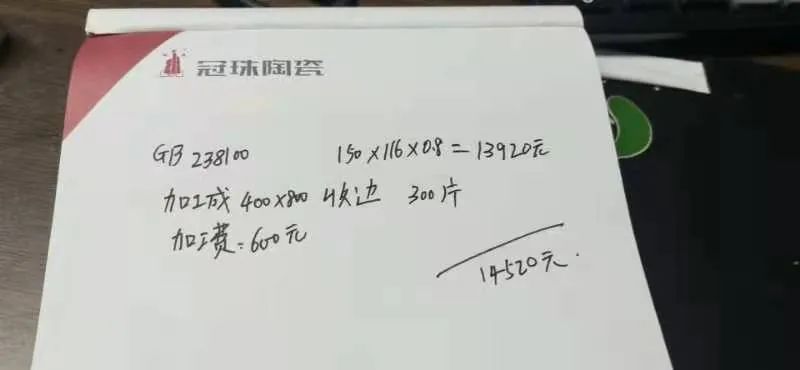 冠珠陶瓷
GB 238100 150×116×0.8=13920元
加工成 400×800 收边 300片
加工费:600元
14520元.